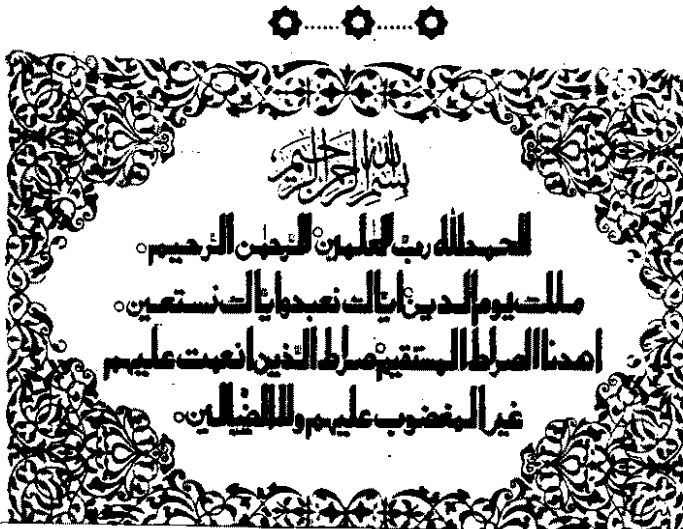 بسم الله الرحمن الرحيم
الحمد لله رب العلمين ○ الرحمن الرحيم ○
ملك يوم الدين ○ اياك نعبد واياك نستعين ○
اهدنا الصراط المستقيم ○ صراط الذين انعمت عليهم
غير المغضوب عليهم ولا الضالين ○